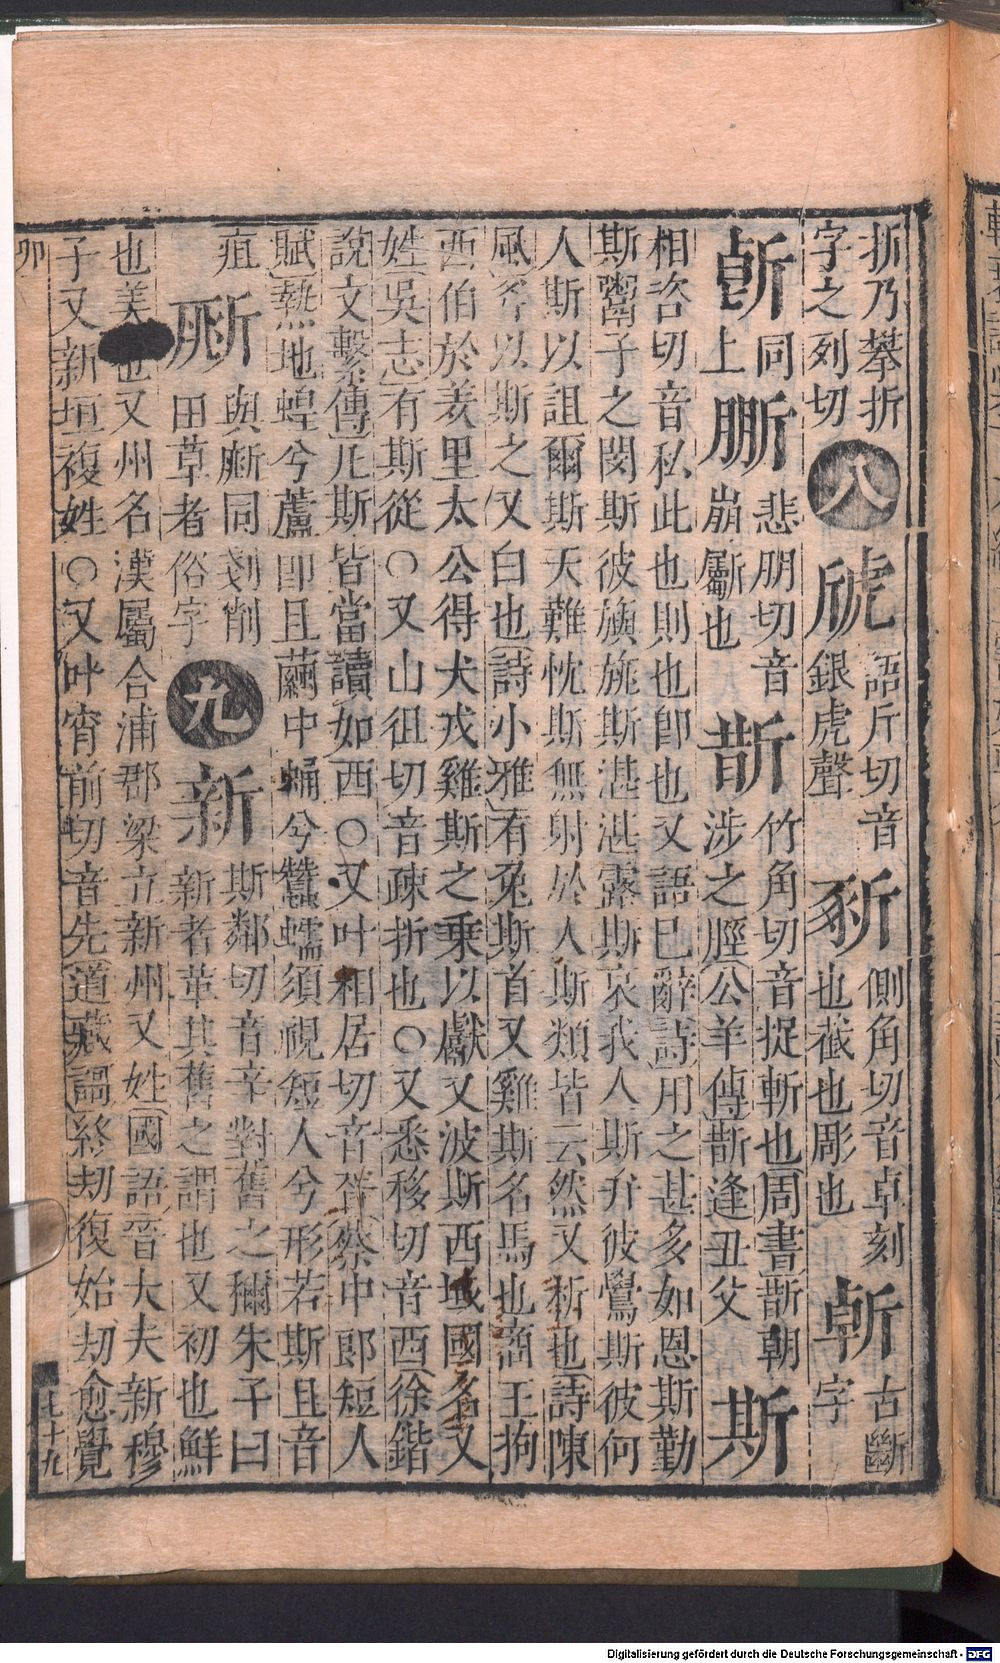 折乃攀折
字之列切
八
虒
語斤切音
銀虎聲
㣇
側角切音卓刻
也截也彫也
𣂚
古斷
字
𣃁
同
上
𣂤
悲朋切音
崩斸也
斮
竹角切音捉斬也周書斮朝
涉之脛公羊傳斮逢丑父
斯
相咨切音私此也則也卽也又語巳辭詩用之甚多如恩斯勤
斯鬻子之閔斯彼旟旐斯湛湛露斯哀我人斯弁彼鸒斯彼何
人斯以詛爾斯天難忱斯無射於人斯類皆云然又析也詩陳
風斧以斯之又白也詩小雅有兔斯首又雞斯名馬也商王拘
西伯於羑里太公得犬戎雞斯之乘以獻又波斯西域國名又
姓吳志有斯從○又山徂切音疎折也○又悉移切音西徐鍇
說文繫傳凡斯皆當讀如西○又叶相居切音胥蔡中郎短人
賦熱地蝗兮蘆卽且繭中蛹兮蠶蠕須視短人兮形若斯且音
疽
𠪿
與廝同剗削
田草者俗字
九
新
斯鄰切音辛對舊之稱朱子曰
新者革其舊之謂也又初也鮮
也美也又州名漢屬合浦郡梁立新州又姓國語晉大夫新穆
子又新垣複姓○又叶宵前切音先道藏謌終劫復始劫愈覺
卯
七十九
Digitalisierung gefördert durch die Deutsche Forschungsgemeinschaft - DFG